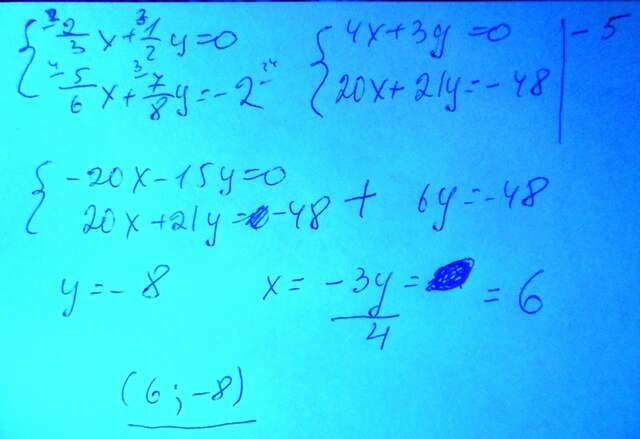 { ²⁻2/3 x + ³⁻1/2 y = 0 { 4x + 3y = 0 | -5
{ ⁴⁻5/6 x + ³⁻7/8 y = -2 ⁻²⁴ { 20x + 21y = -48
{ -20x - 15y = 0
{ 20x + 21y = -48 + 6y = -48
y = -8 x = -3y/4 = = 6
(6; -8)